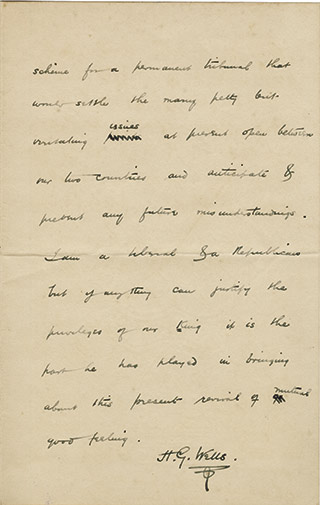 scheme for a permanent tribunal that
would settle the many petty but
irritating issues at present open between
our two countries and anticipate &
prevent any future misunderstandings.
I am a liberal & a Republican
but if anything can justify the
privileges of our King it is the
part he has played in bringing
about this present revival of mutual
good feeling.
H. G. Wells